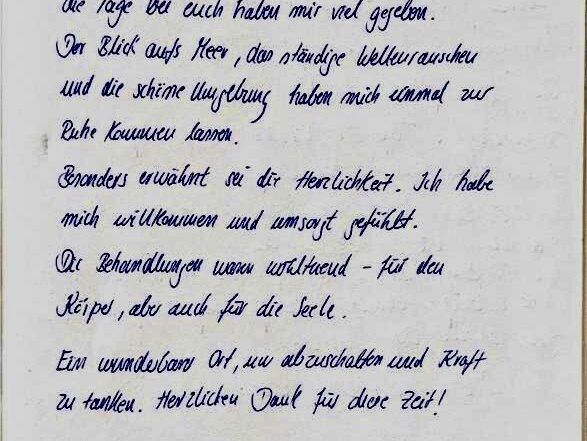 die Tage bei euch haben mir viel gegeben.
Der Blick aufs Meer, das ständige Wellenrauschen
und die schöne Umgebung haben mich einmal zur
Ruhe kommen lassen.
Besonders erwähnt sei die Herzlichkeit. Ich habe
mich willkommen und umsorgt gefühlt.
Die Behandlungen waren wohltuend – für den
Körper, aber auch für die Seele.
Ein wunderbarer Ort, um abzuschalten und Kraft
zu tanken. Herzlichen Dank für diese Zeit!